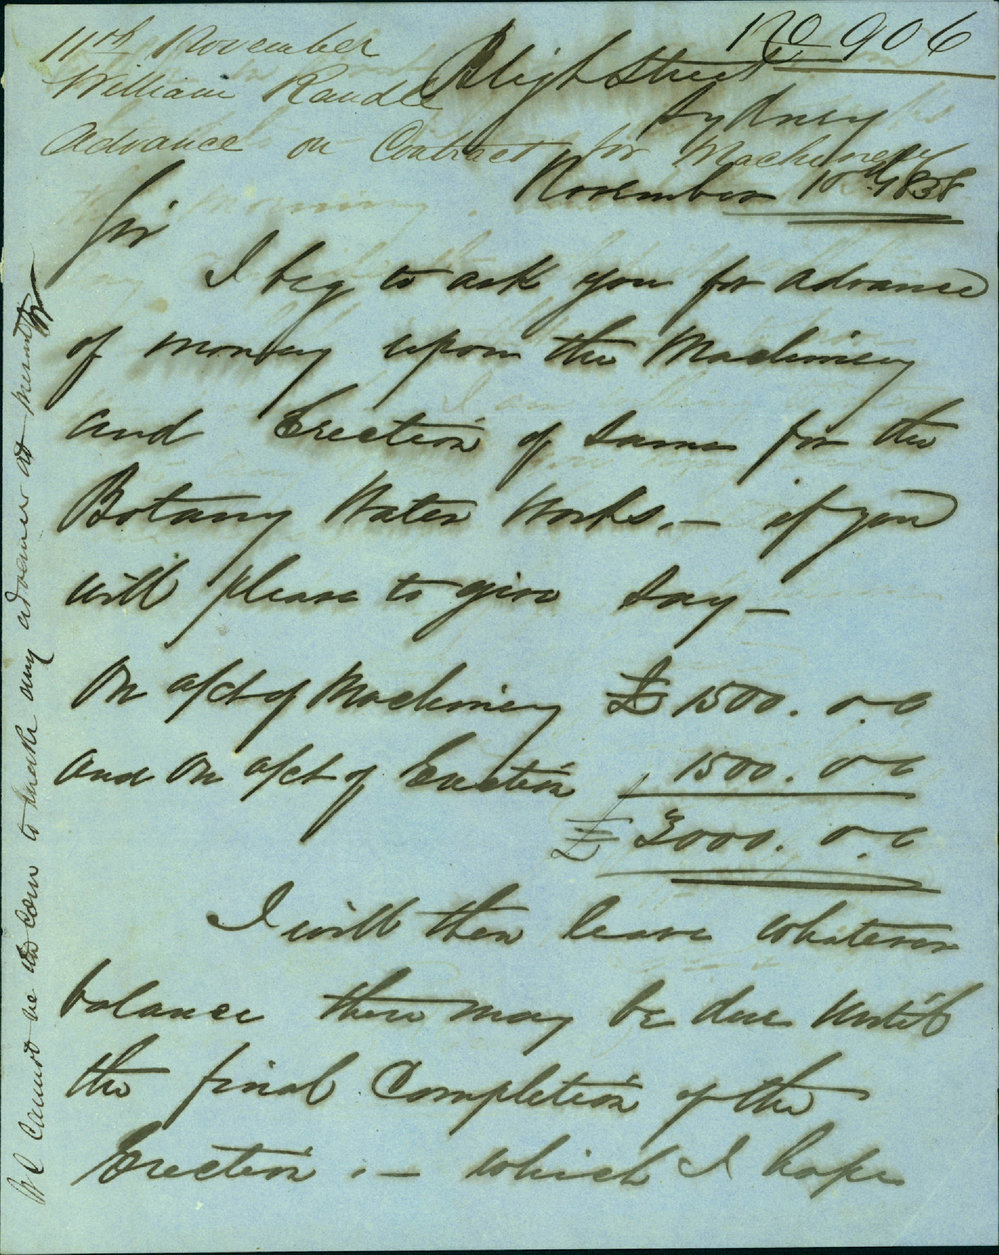 No 906
11th November
William Randle
Advance on Contract for Machinery
Bligh Street
Sydney
November 10th 1858
Sir
I beg to ask you for advance
of money upon the Machinery
and Erection of same for the
Botany Water Works. — if you
will please to give say —
On a/ct of Machinery £1500. 0. 0
and On a/ct of Erection 1500. 0 0
£3000. 0. 0
I will then leave whatever
balance there may be due until
the final Completion of the
Erection. — which I hope
Cannot be to make any advance at